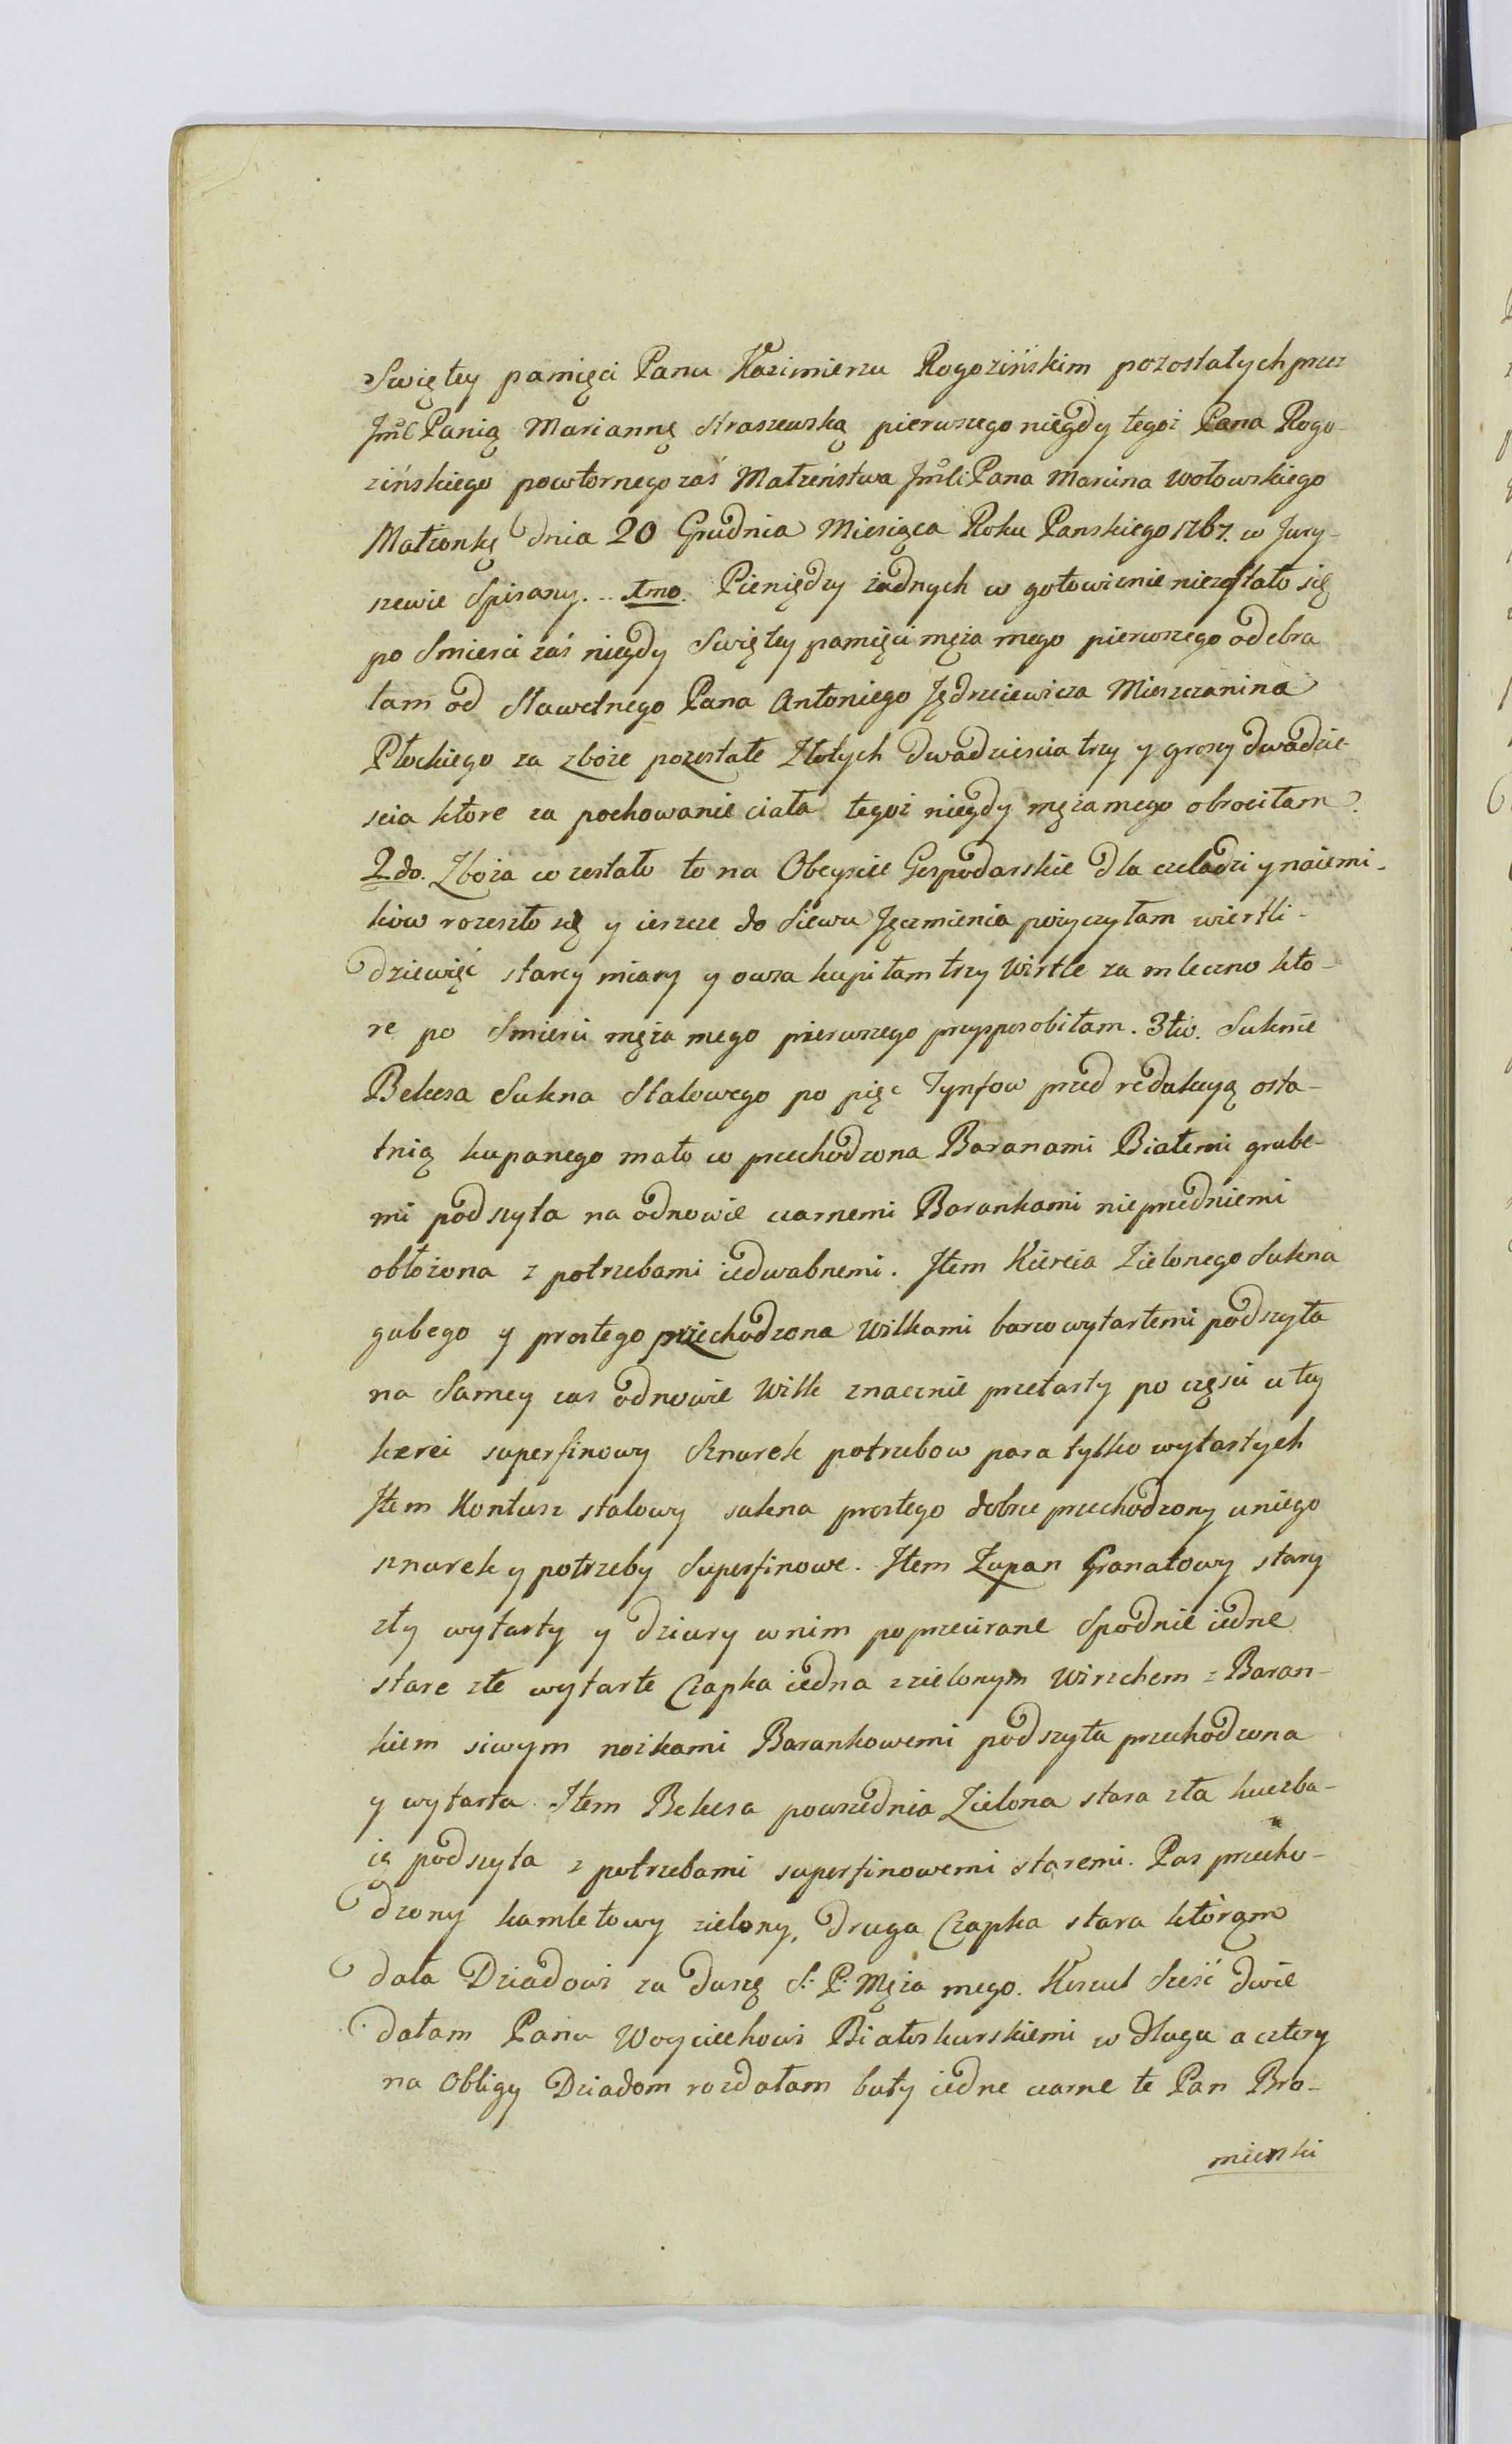 Swiętey pamięci Panu Kazimierzu Rogozińskim pozostałych przez
Jmć Panią Mariannę Straszewską pierwszego niegdy tegoż Pana Rogo-
zińskiego powtornego zaś Małżeństwa Jmći Pana Marcina Wołowskiego
Małżonkę dnia 20 Grudnia Miesiąca Roku Panskiego 1767. w Jury-
szewie Spisany. .. 1mo. Pieniędzy żadnych w gotowiznie niezostało się
po Smierci zaś niegdy Swiętey pamięci męża mego pierwszego odebra
łam od Sławetnego Pana Antoniego Jędrzeiewicza Mieszczanina
Płockiego za zboże pozostałe Złotych dwadziescia trzy y groszy dwadzie-
scia ktore za pochowanie ciała tegoż niegdy męża mego obrociłam.
2do. Zboża co zostało to na Obeyscie Gospodarskie dla czeladzi y naiemi-
kow rozeszło się y ieszcze do Siewu Jęczmienia pożyczyłam wiertli-
dziewięć starey miary y owsa kupiłam trzy Wirtle za mleczno kto-
re po Smierci męża mego pierwszego przysposobiłam. 3tio. Suknie
Bekesa Sukna Stalowego po pięc Tynfow przed redukcyą osta-
tnią kupanego mało co przechodzona Baranami Białemi grube-
mi podszyta na odnowie czarnemi Barankami nieprzedniemi
obłożona z potrzebami iedwabnemi. Jtem Kiereia Zielonego Sukna
gubego y prostego przechodzona Wilkami barzo wytartemi podszyta
na Samey zas odnowie Wilk znacznie przetarty po części u tey
kerei superfinowy Sznurek potrzebow para tylko wytartych
Jtem Kontusz stalowy sukna prostego dobrze przechodzony uniego
sznurek y potrzeby Superfinowe. Jtem Zupan Granatowy stary
zły wytarty y dziury wnim poprzecirane Spodnie iedne
stare złe wytarte Czapka iedna zzielonym Wirzchem z Baran-
kiem siwym nożkami Barankowemi podszyta przechodzona
y wytarta. Jtem Bekesa powszednia Zielona stara zła kuczba-
ią podszyta z potrzebami superfinowemi staremi. Pas przecho-
dzony kamletowy zielony, druga Czapka stara ktorąm
dała Dziadowi za duszę S: P: Męża mego. Koszul Sześć dwie
dałam Panu Woyciechowi Białoskurskiemi w długu a cztery
na Obligy Dziadom rozdałam buty iedne czarne te Pan Bro-
mierski